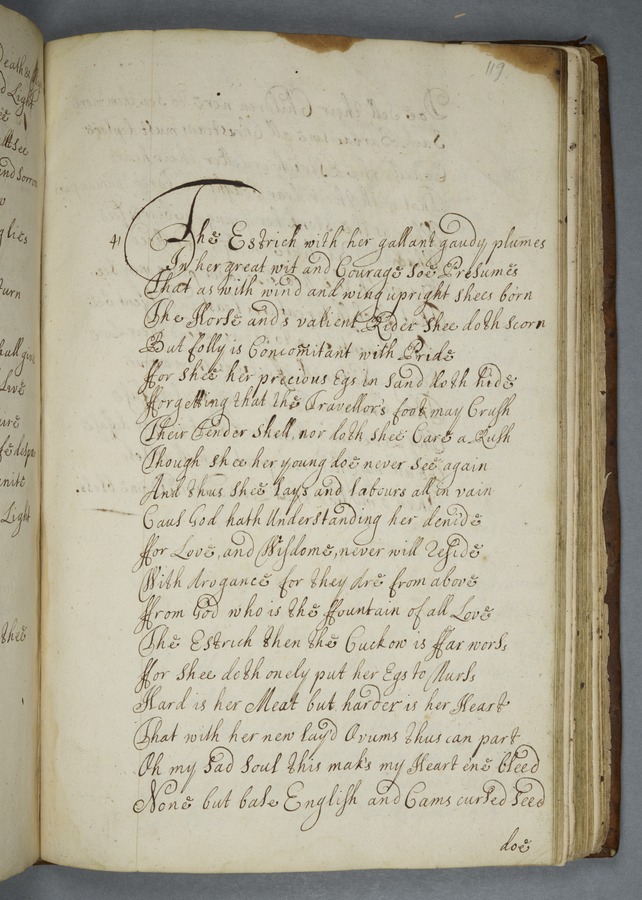 119
41 The Estrich with her gallant gaudy plumes
In her great wit and Courage soe Presumes
That as with wind and wing upright shees born
The Horse and's valient Rider shee doth scorn
But folly is Concomitant with Pride
ffor shee her precious Egs in sand doth hide
fforgetting that the Travellors foot may Crush
Their Tender Shell, nor doth shee Care a Rush
Though shee her young doe never see again
And thus shee lays and labours all in vain
Caus God hath Understanding her denide
ffor Love, and Wisdome, never will reside
With Arogance for they are from above
ffrom God who is the ffountain of all Love
The Estrich then the Cuckow is ffar wors
ffor shee doth onely put her Egs to Nurs
Hard is her Meat but harder is her Heart
That with her new lay'd Ovums thus can part
Oh my sad soul this maks my Heart ene bleed
None but base English and Cams cursed seed
doe